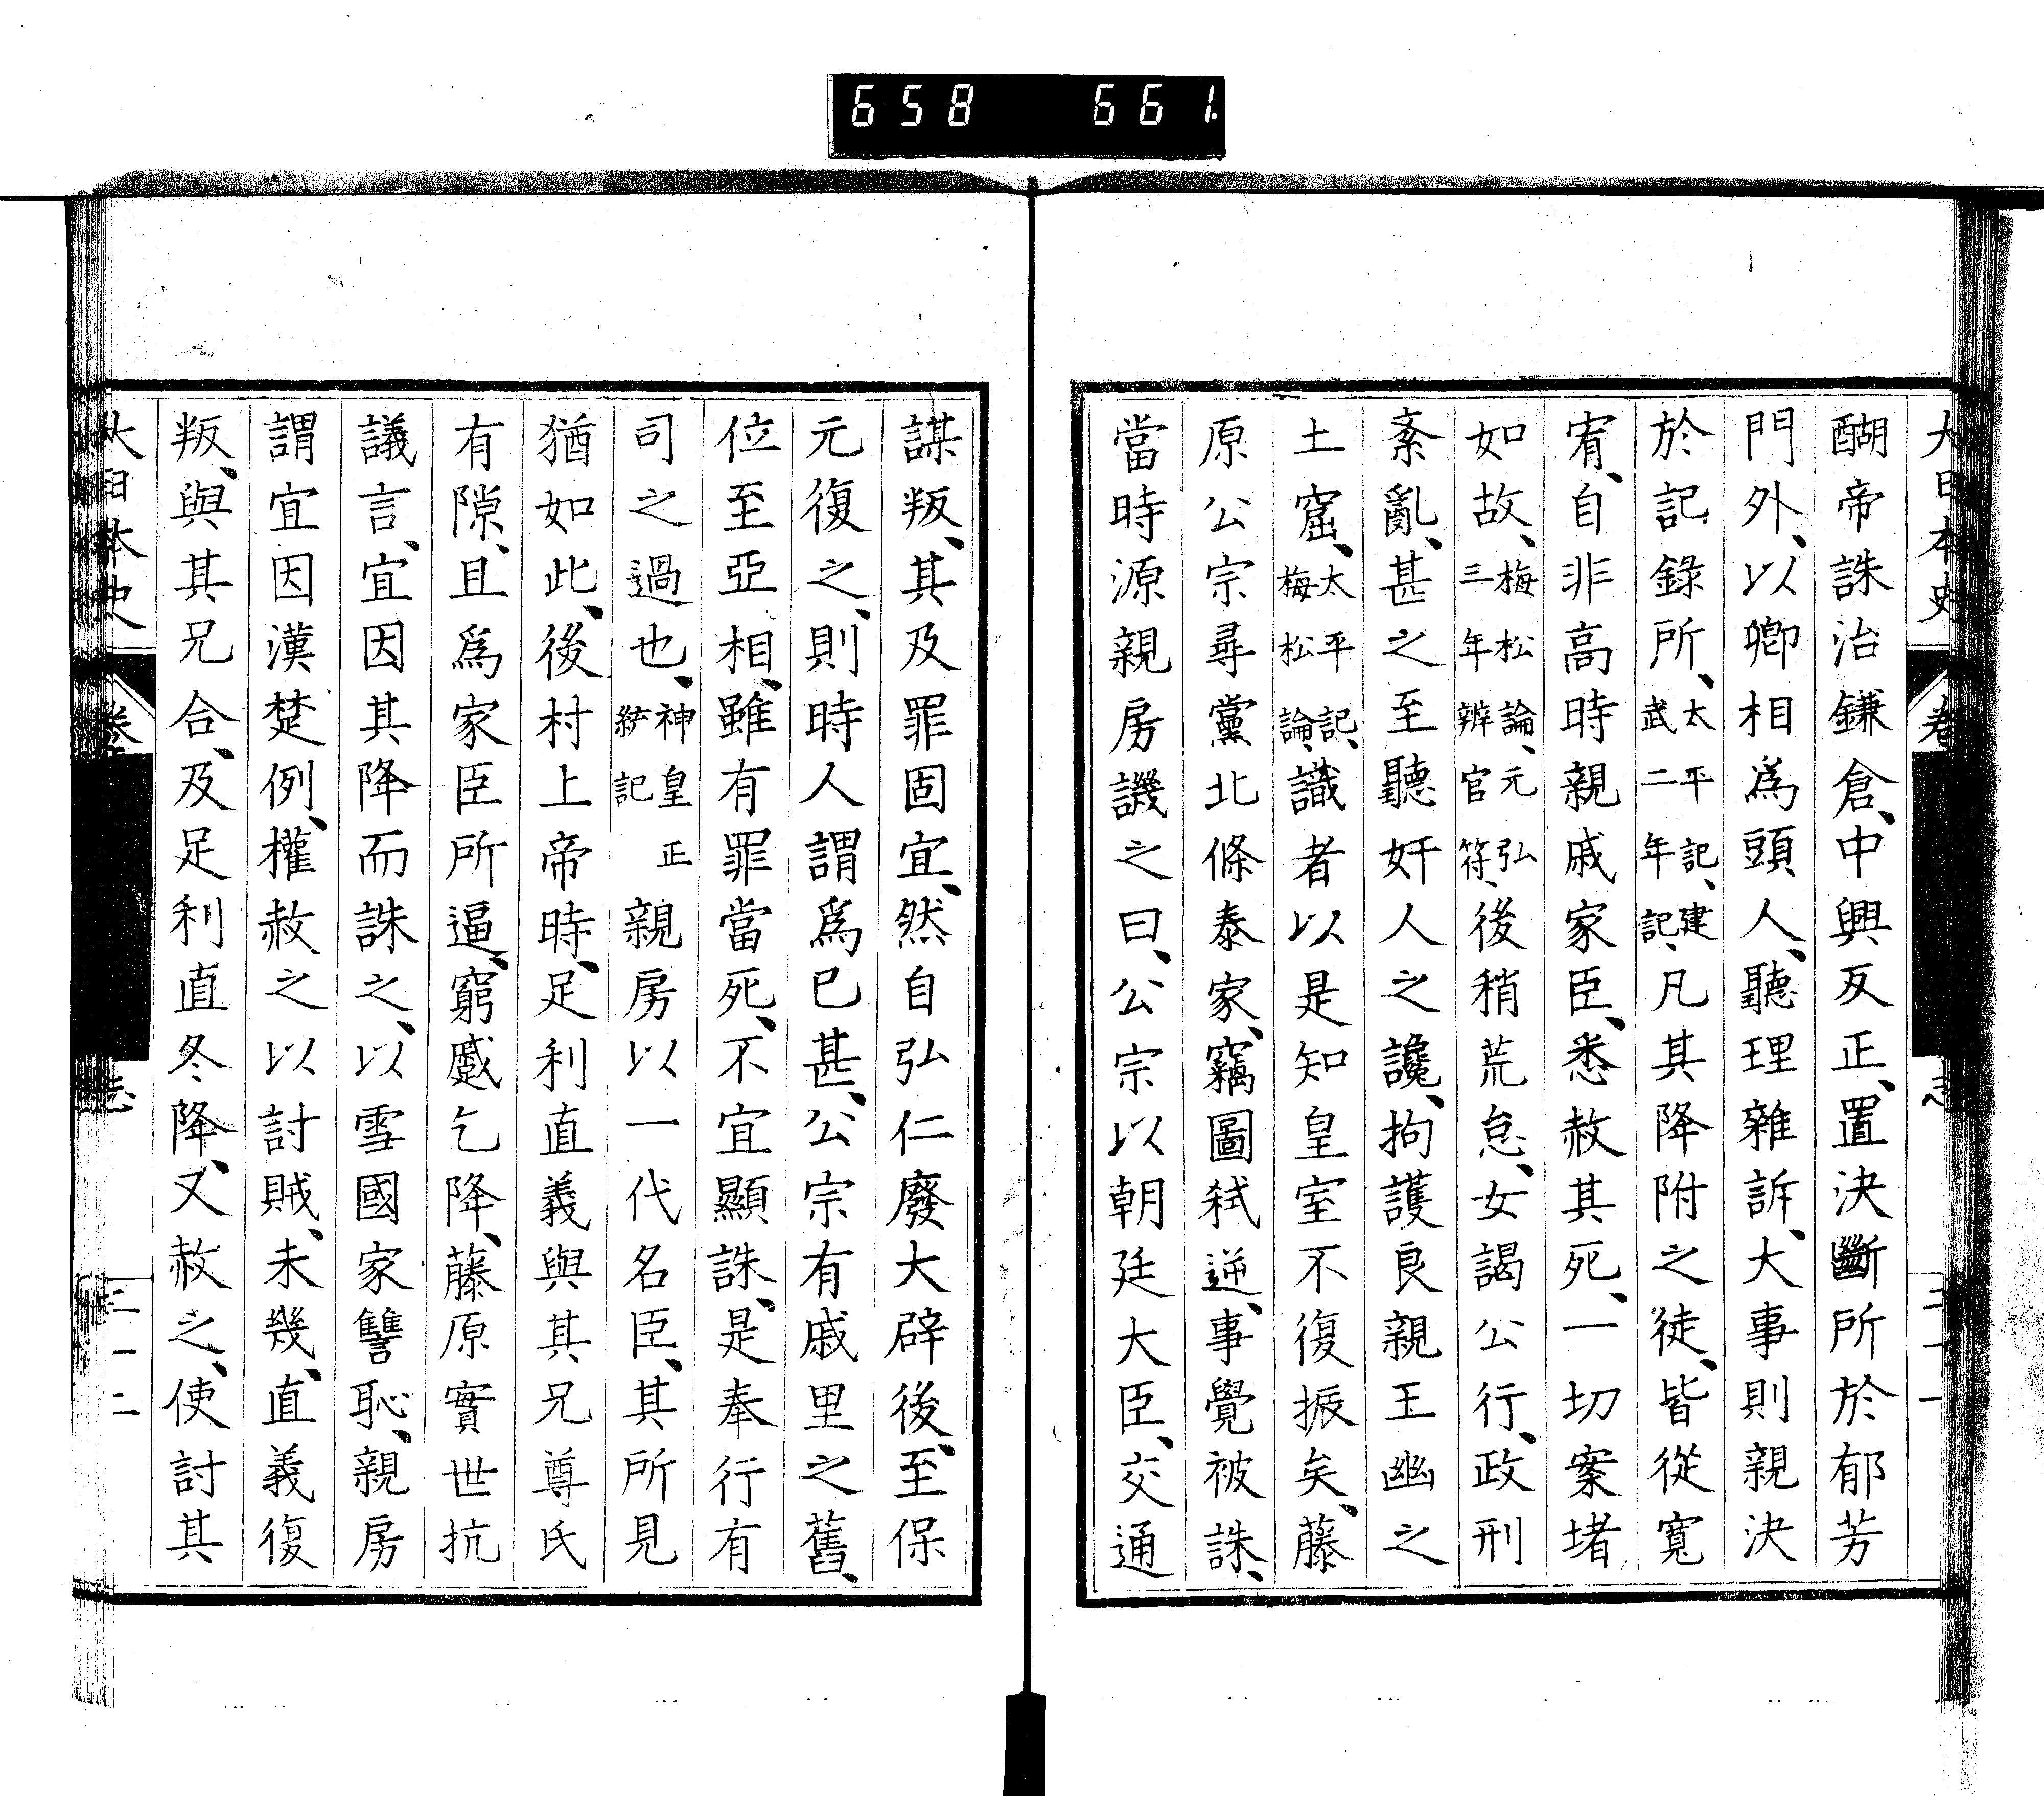 658 661
大日本史 卷 志 三十一
醐帝誅治鎌倉、中興反正、置決斷所於郁芳
門外、以卿相爲頭人、聽理雜訴、大事則親決
於記錄所、太平記、建武二年記、凡其降附之徒、皆從寬
宥、自非高時親戚家臣、悉赦其死、一切案堵
如故、梅松論、元弘三年辨官符、後稍荒怠、女謁公行、政刑
紊亂、甚之至聽奸人之讒、拘護良親王幽之
土窟、太平記、梅松論、識者以是知皇室不復振矣、藤
原公宗尋黨北條泰家、竊圖弒逆、事覺被誅、
當時源親房譏之曰、公宗以朝廷大臣、交通
謀叛、其及罪固宜、然自弘仁廢大辟後、至保
元復之、則時人謂爲已甚、公宗有戚里之舊、
位至亞相、雖有罪當死、不宜顯誅、是奉行有
司之過也、神皇正統記 親房以一代名臣、其所見
猶如此、後村上帝時、足利直義與其兄尊氏
有隙、且爲家臣所逼、窮蹙乞降、藤原實世抗
議言、宜因其降而誅之、以雪國家讐恥、親房
謂宜因漢楚例、權赦之以討賊、未幾、直義復
叛、與其兄合、及足利直冬降、又赦之、使討其
大日本史 卷 志 三十二